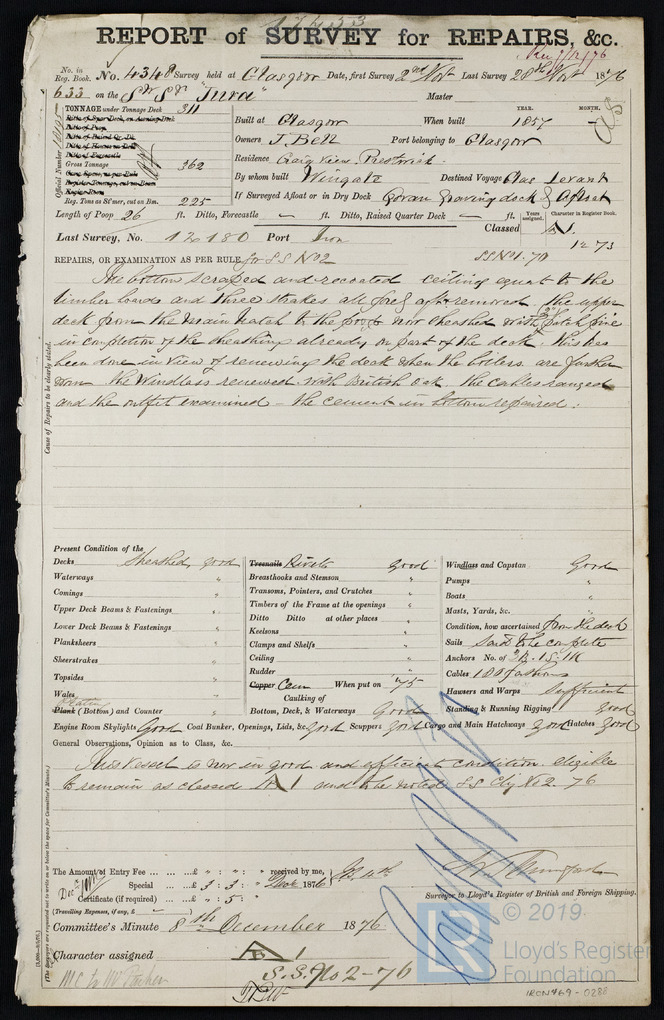 REPORT of SURVEY for REPAIRS, &c.
Rec 7/12/76
No. in Reg. Book. No. 4348 Survey held at Glasgow Date, first Survey 2nd Novr Last Survey 28th Novr 1876
633 on the Sw Sr "Jura" Master
TONNAGE under Tonnage Deck 311
Gross Tonnage 362
Reg. Tons as St'mer, cut on Bm. 225
Official Number
Built at Glasgow When built YEAR. 1857 MONTH.
Owners J. Bell Port belonging to Glasgow
Residence Craig View Prestwick
By whom built Wingate Destined Voyage Glas Levant
If Surveyed Afloat or in Dry Dock Govan Graving dock & Afloat
Length of Poop 26 ft. Ditto, Forecastle – ft. Ditto, Raised Quarter Deck – ft.
Years assigned. Character in Register Book.
Last Survey, No. 12180 Port Iron Classed A 1
12 73
REPAIRS, OR EXAMINATION AS PER RULE, for S S No 2 SS No 1. 70
The bottom scraped and recoated ceiling equal to the
timber boards and three strakes all fore & aft removed. The upper
deck from the main hatch to the poop now sheathed with 3" pitch pine
in completion of the sheathing already on part of the deck. This has
been done in view of renewing the deck when the boilers are further
worn The Windlass renewed with British Oak The cables ranged
and the outfit examined – the cement in bottom repaired.
Cause of Repairs to be clearly stated.
Present Condition of the
Decks Sheathed, good
Waterways "
Comings "
Upper Deck Beams & Fastenings "
Lower Deck Beams & Fastenings "
Planksheers "
Sheerstrakes "
Topsides "
Wales "
Plating
Plank (Bottom) and Counter "
Treenails Rivets good
Breasthooks and Stemson "
Transoms, Pointers, and Crutches "
Timbers of the Frame at the openings "
Ditto Ditto at other places "
Keelsons "
Clamps and Shelfs "
Ceiling "
Rudder "
Copper Cem When put on '75
Caulking of
Bottom, Deck, & Waterways Good
Windlass and Capstan Good
Pumps "
Boats "
Masts, Yards, &c. "
Condition, how ascertained from the deck
Sails Said to be complete
Anchors No. of 3B. 1S. 1K
Cables 180 fathoms
Hawsers and Warps Sufficient
Standing & Running Rigging good
Engine Room Skylights Good Coal Bunker, Openings, Lids, &c. good Scuppers good Cargo and Main Hatchways good Hatches good
General Observations, Opinion as to Class, &c.
This Vessel is now in good and efficient condition. eligible
to remain as classed A 1 and to be noted S.S. Cly No 2. 76
The Amount of Entry Fee ... ... ... £ : : received by me,
Special ... ... £ 3 : 3 : 1876
Certificate (if required) ... ... £ " 5 :
(Travelling Expenses, if any, £ )
Surveyor to Lloyd's Register of British and Foreign Shipping.
Committee's Minute 8th December 1876
Character assigned A 1
S.S. No 2–76
© 2019
LR
Lloyd's Register
Foundation
IRON469-0288